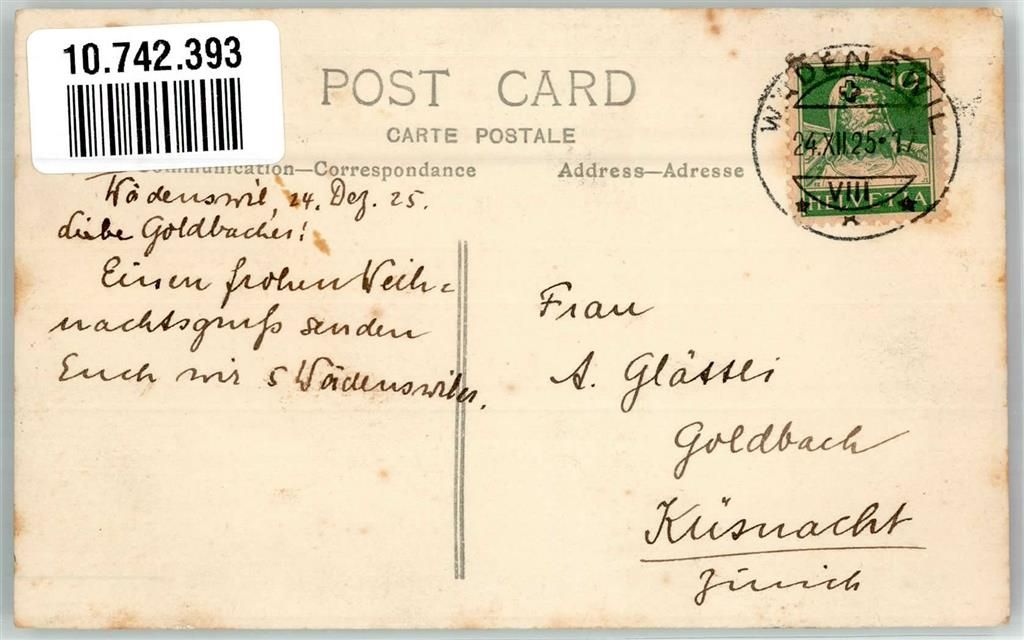 10.742.393
POST CARD
CARTE POSTALE
Communication—Correspondence
Address—Adresse
WÄDENSWIL
24.XII.25•17
VIII
10
HELVETIA
Wädenswil, 24. Dez. 25.
Liebe Goldbacher!
Einen frohen Weih=
nachtsgruß senden
Euch wir 5 Wädenswiler.
Frau
A. Glättli
Goldbach
Küsnacht
Zürich